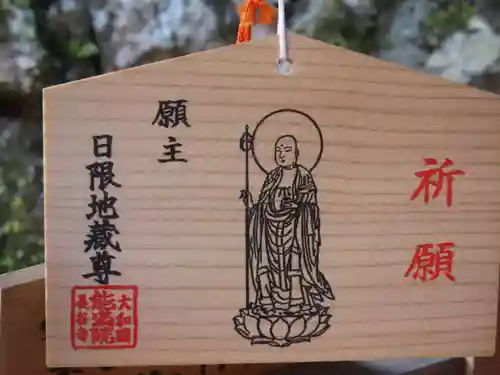 祈願
願主
日限地蔵尊
大和國
能満院
長谷寺